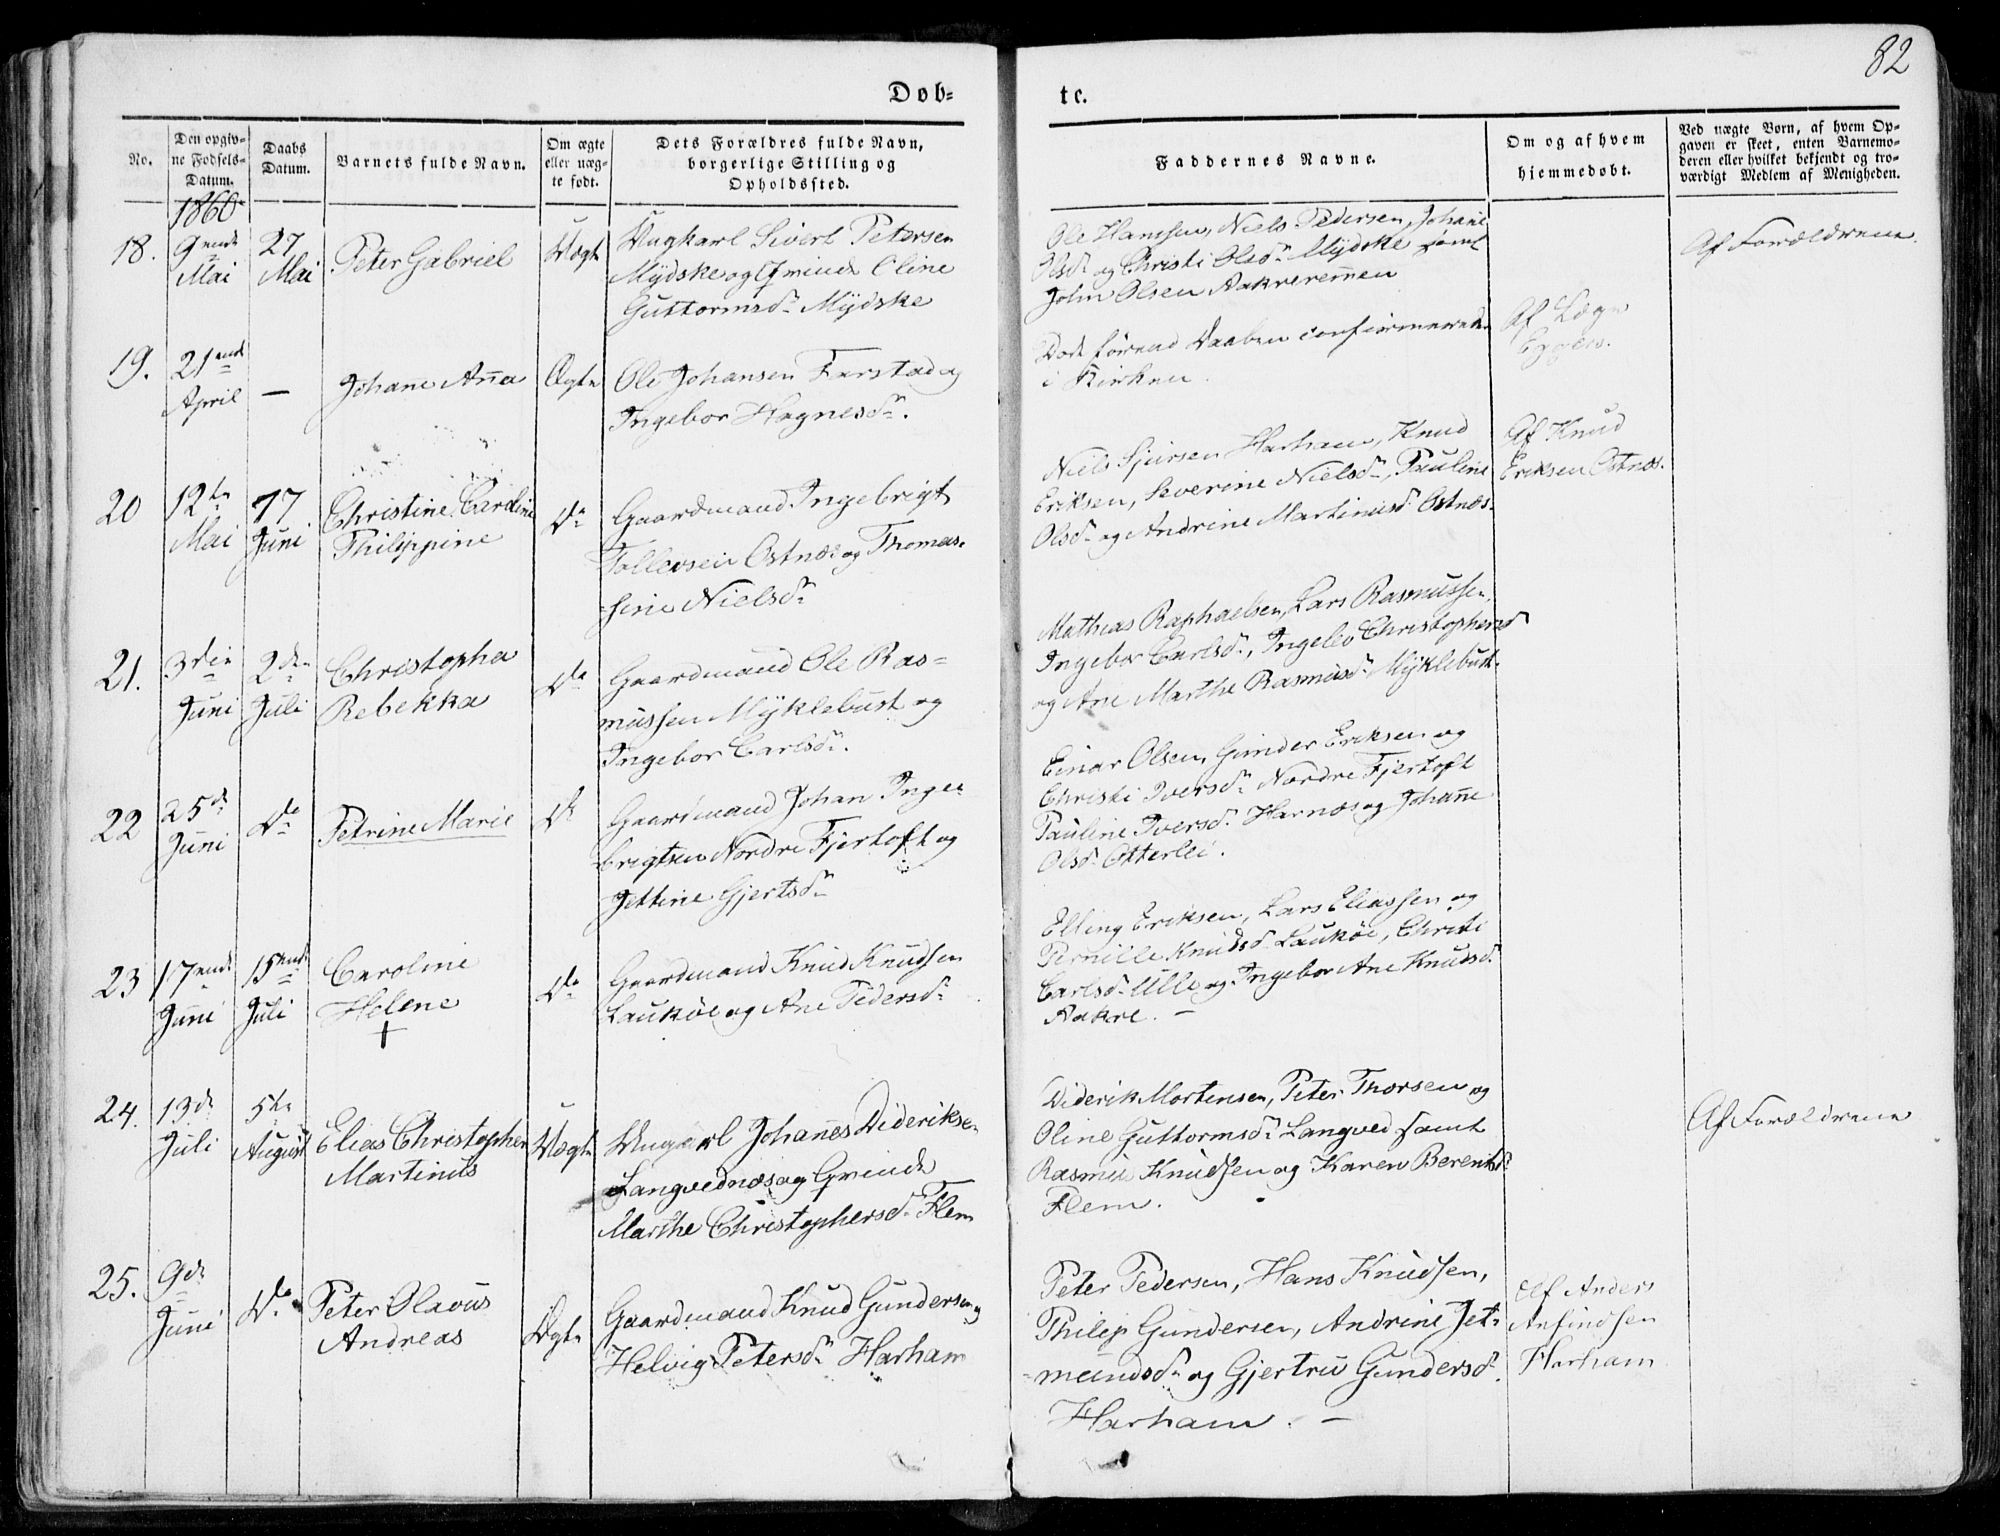 82
Døb-
te.
No.
Den opgiv-
ne Fødsels-
Datum.
Daabs
Datum.
Barnets fulde Navn.
Om ægte
eller uæg-
te født.
Dets Forældres fulde Navn,
borgerlige Stilling og
Opholdssted.
Faddernes Navne.
Om og af hvem
hjemmedøbt.
Ved uægte Børn, af hvem Op-
gaven er skeet, enten Barnemo-
deren eller hvilket bekjendt og tro-
værdigt Medlem af Menigheden.
1860
18.
9nende
Mai
27
Mai
Peter Gabriel
Uægte
Ungkarl Sivert Petersen
Mydske og Qvinde Oline
Guttormsd. Mydske
Ole Hanssen, Niels Pedersen, Johane
Olsd. og Christi Olsd. Mydske samt
John Olsen Aakreremen
Af Forældrene.
19.
21nde
April
—
Johane Anna
Ægte
Ole Johansen Farstad og
Ingebor Hagnesd.
Død førend Daaben confirmerede
i Kirken.
Af Læge
20
12te
Mai
17
Juni
Christine Caroline
Philippine
Do
Gaardmand Ingebrigt
Tollevsen Østnæs og Thomas-
sine Nielsd.
Niels Sjursen Harham, Knud
Eriksen, Severine Nielsd., Pauline
Olsd. og Andrine Martinusd. Østnæs.
Af Knud
Eriksen Østnæs.
21.
3die
Juni
2den
Juli
Christopha
Rebekka
Do
Gaardmand Ole Ras-
mussen Myklebust og
Ingebor Carlsd.
Mathias Raphaelsen, Lars Rasmussen,
Ingebor Carlsd., Ingelev Christophersd
og Ane Marthe Rasmusd. Myklebust.
22
25de
Juni
Do
Petrine Marie
Do
Gaardmand Johan Inge-
brigtsen Nordre Fjertoft og
Jettine Gjertsd.
Einar Olsen, Gunder Eriksen og
Christi Iversd. Nordre Fjertoft
Pauline Iversd. Harnæs og Johanne
Olsd. Otterlei.
23
17nde
Juni
15nde
Juli
Caroline
Helene
+
Do
Gaardmand Knud Knudsen
Laukøe og Ane Pedersd.
Elling Eriksen, Lars Eliassen og
Pernille Knudsd. Laukøe, Christi
Carlsd. Ulle og Ingebor Ane Knudsd.
Aakre. —
24.
13de
Juli
5te
August
Elias Christopher
Martinus
Uægte
Ungkarl Johannes Dideriksen
Langvednæs og Qvinde
Marthe Christophersd. Flem
Diderik Mortensen, Peter Thorsen og
Oline Guttormsd. Langved samt
Rasmus Knudsen og Karen Berentsd.
Flem.
Af Forældrene
25.
9de
Juni
Do
Peter Olavus
Andreas
Ægte
Gaardmand Knud Gundersen og
Helvig Petersd. Harham
Peter Pedersen, Hans Knudsen,
Philip Gundersen, Andrine Jet-
mundsd. og Gjertru Gundersd.
Harham. —
Af Anders
Anfindsen
Harham